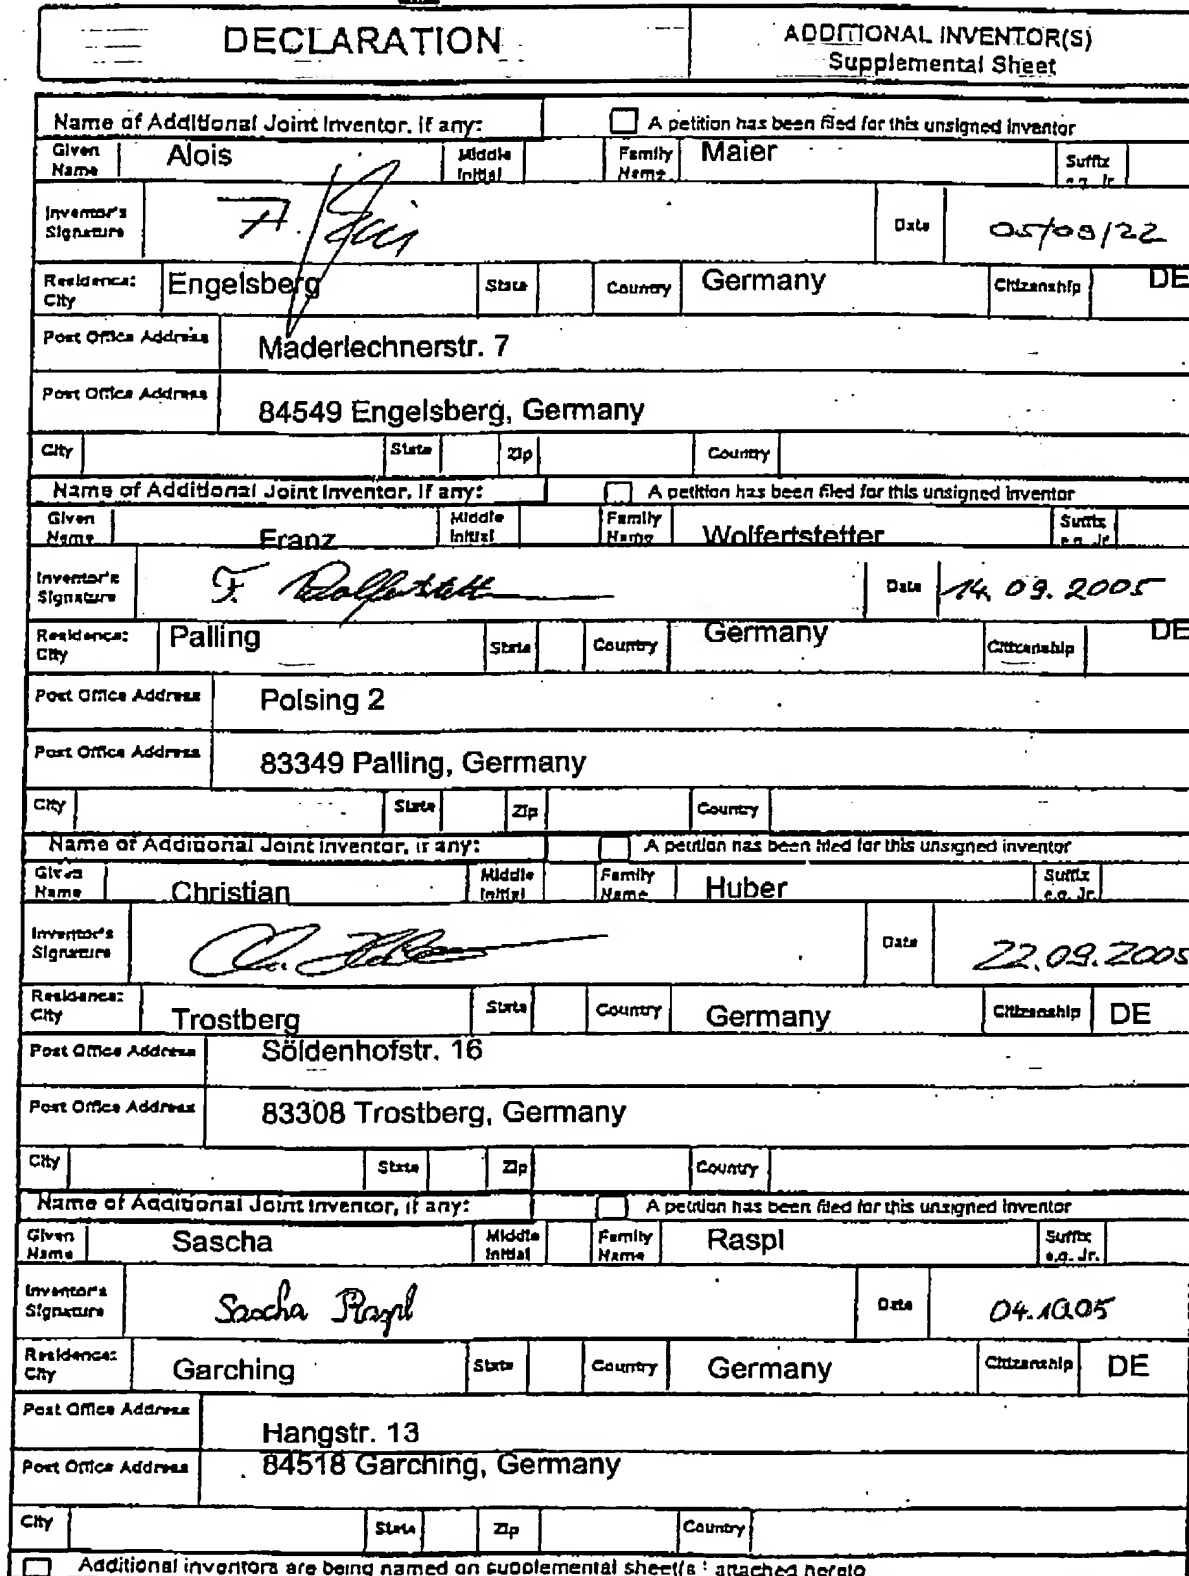 DECLARATION
ADDITIONAL INVENTOR(S)
Supplemental Sheet
Name of Additional Joint Inventor, if any:
A petition has been filed for this unsigned inventor
Given Name
Alois
Middle Initial
Family Name
Maier
Suffix e.g. Jr.
Inventor's Signature
A.
Date
05/09/22
Residence: City
Engelsberg
State
Country
Germany
Citizenship
DE
Post Office Address
Maderlechnerstr. 7
Post Office Address
84549 Engelsberg, Germany
City
State
Zip
Country
Name of Additional Joint Inventor, if any:
A petition has been filed for this unsigned inventor
Given Name
Franz
Middle Initial
Family Name
Wolfertstetter
Suffix e.g. Jr.
Inventor's Signature
F. Wolfertstett
Date
14.09.2005
Residence: City
Palling
State
Country
Germany
Citizenship
DE
Post Office Address
Polsing 2
Post Office Address
83349 Palling, Germany
City
State
Zip
Country
Name of Additional Joint Inventor, if any:
A petition has been filed for this unsigned inventor
Given Name
Christian
Middle Initial
Family Name
Huber
Suffix e.g. Jr.
Inventor's Signature
Ch. Huber
Date
22.09.2005
Residence: City
Trostberg
State
Country
Germany
Citizenship
DE
Post Office Address
Söldenhofstr. 16
Post Office Address
83308 Trostberg, Germany
City
State
Zip
Country
Name of Additional Joint Inventor, if any:
A petition has been filed for this unsigned inventor
Given Name
Sascha
Middle Initial
Family Name
Raspl
Suffix e.g. Jr.
Inventor's Signature
Sascha Raspl
Date
04.10.05
Residence: City
Garching
State
Country
Germany
Citizenship
DE
Post Office Address
Hangstr. 13
Post Office Address
84518 Garching, Germany
City
State
Zip
Country
Additional inventors are being named on supplemental sheet(s) attached hereto